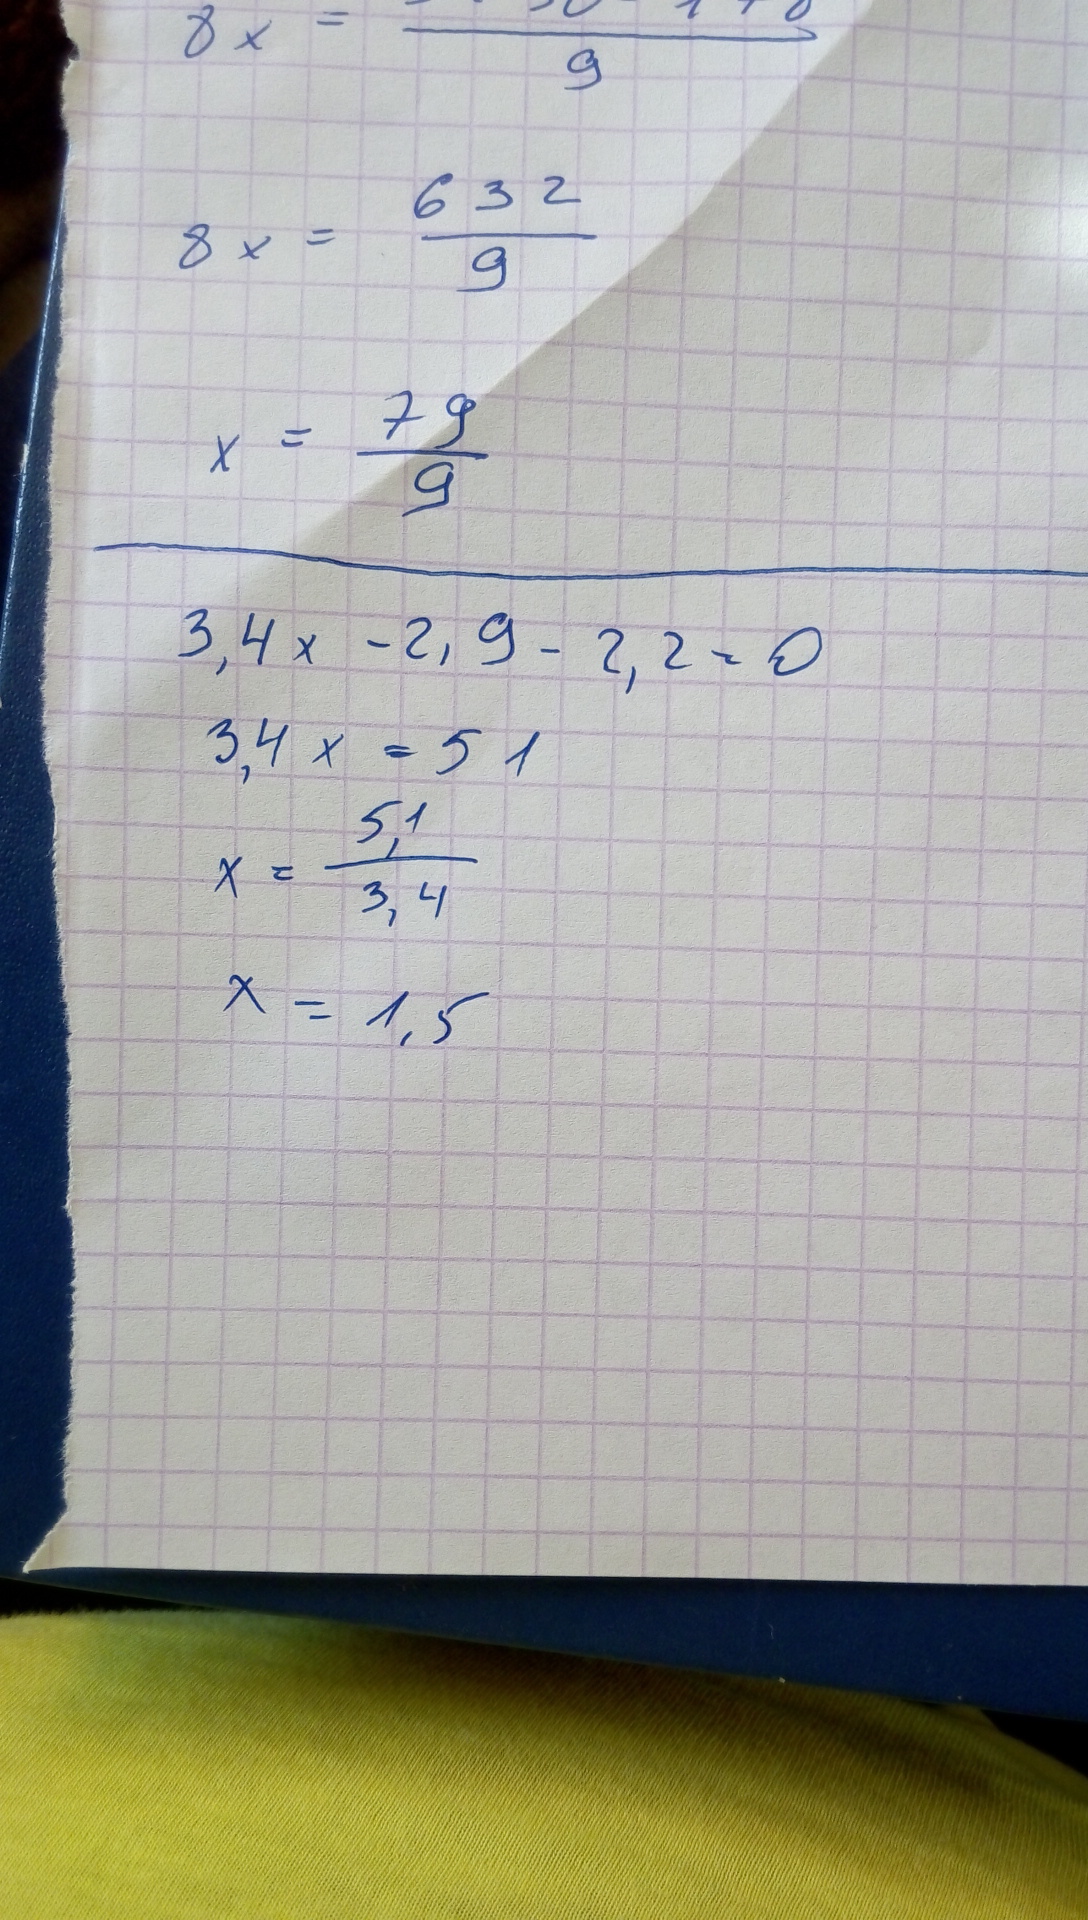 8x =
9
8x = 632
9
x = 79
9
3,4x -2,9 - 2,2 = 0
3,4x = 51
x = 5,1
3,4
x = 1,5